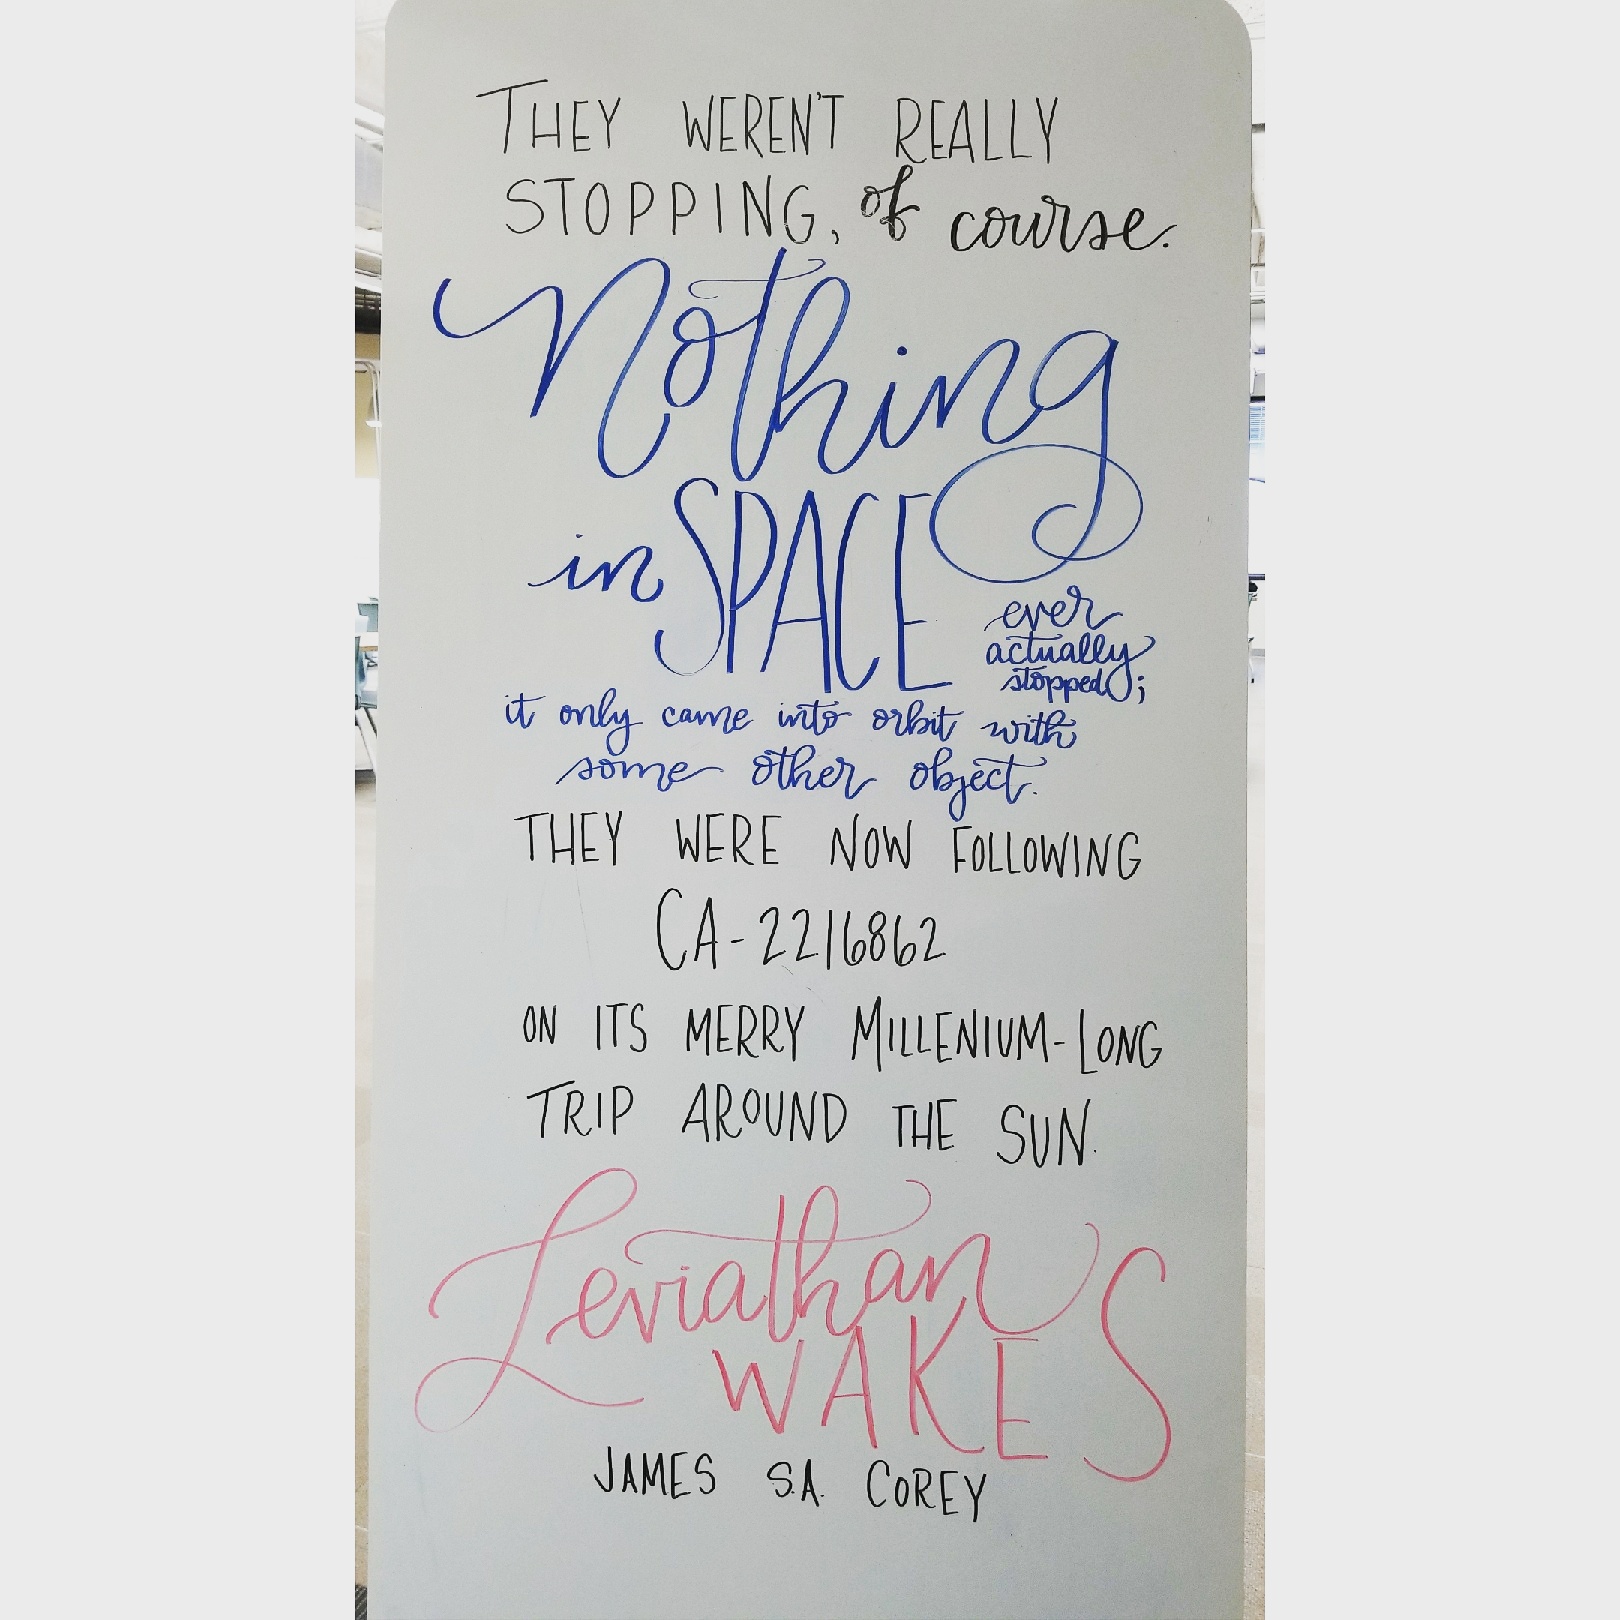 THEY WEREN'T REALLY
STOPPING, of course.
Nothing
in SPACE
ever
actually
stopped;
it only came into orbit with
some other object.
THEY WERE NOW FOLLOWING
CA-2216862
ON ITS MERRY MILLENIUM-LONG
TRIP AROUND THE SUN.
Leviathan
WAKES
JAMES S.A. COREY